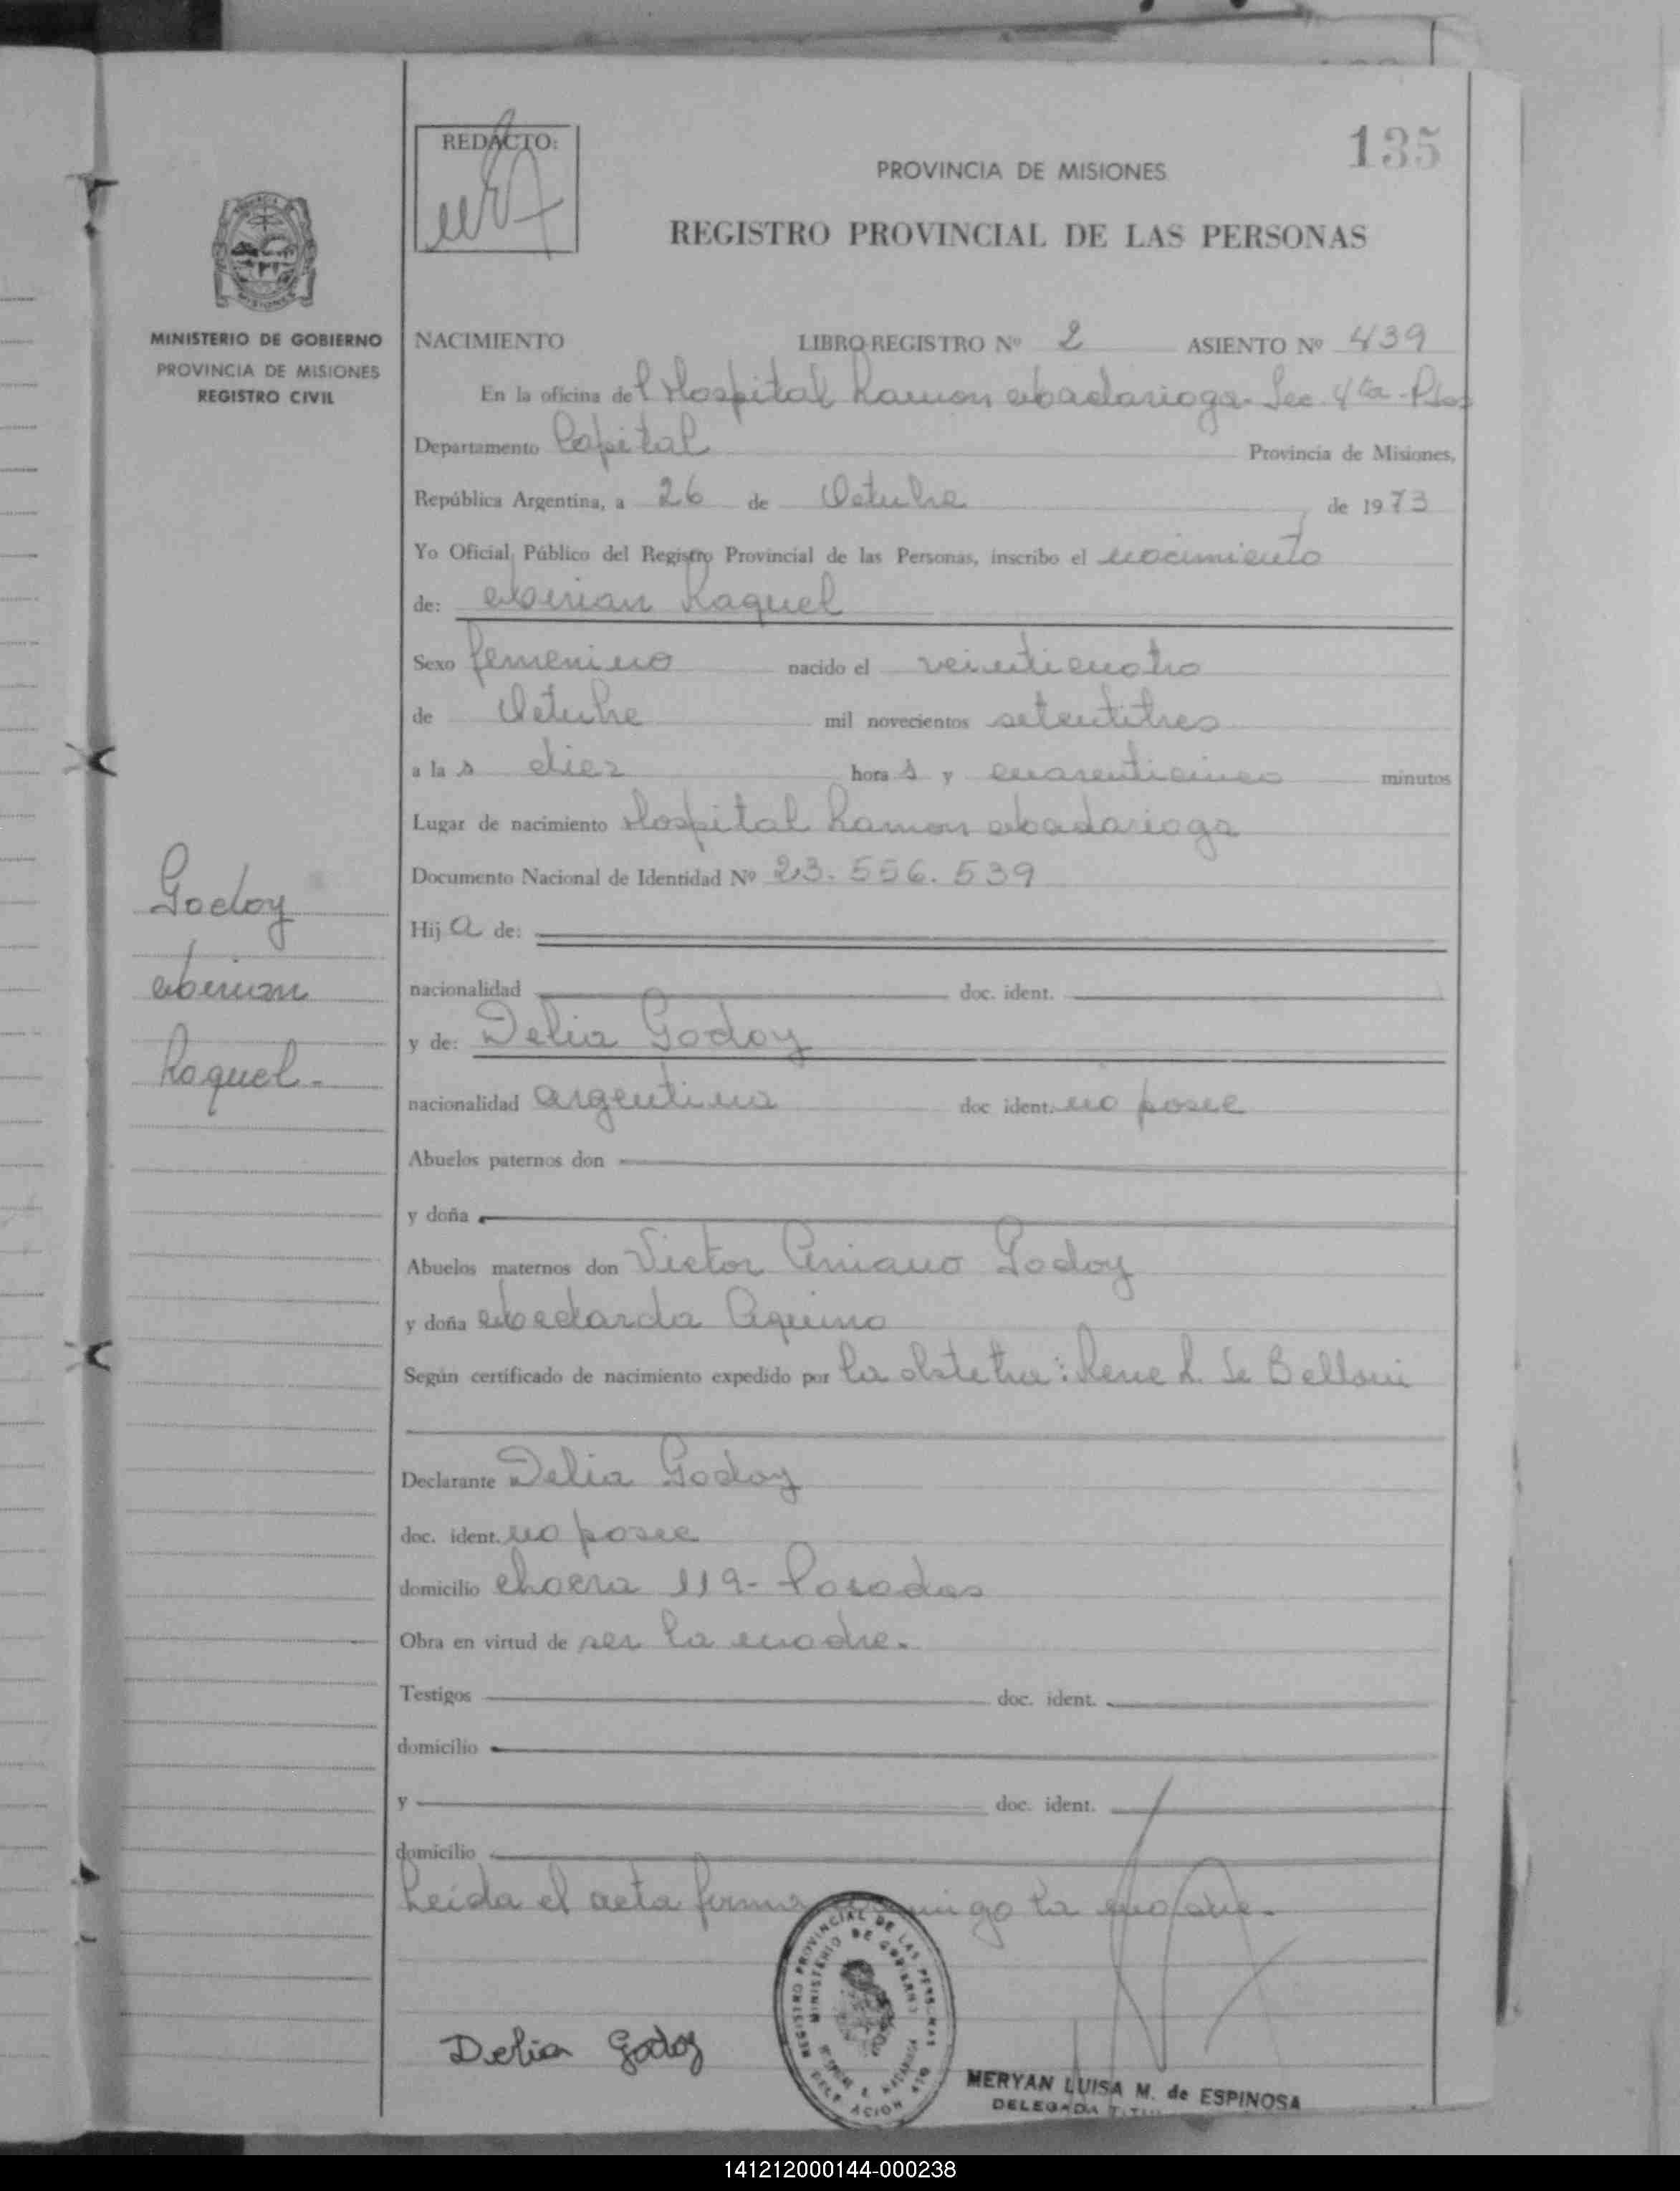 135
REDACTO:
PROVINCIA DE MISIONES
REGISTRO PROVINCIAL DE LAS PERSONAS
MINISTERIO DE GOBIERNO
PROVINCIA DE MISIONES
REGISTRO CIVIL
NACIMIENTO LIBRO-REGISTRO Nº 2 ASIENTO Nº 439
En la oficina del Hospital Ramon Madariaga - Sec 4ta - Pdas
Departamento Capital Provincia de Misiones,
República Argentina, a 26 de Octubre de 1973
Yo Oficial Público del Registro Provincial de las Personas, inscribo el nacimiento
de: Mirian Raquel
Sexo femenino nacido el veinticuatro
de Octubre mil novecientos setentitres
a la s diez hora s y cuarenticinco minutos
Lugar de nacimiento Hospital Ramon Madariaga
Documento Nacional de Identidad Nº 23.556.539
Godoy
Mirian
Raquel.-
Hij a de:
nacionalidad doc. ident.
y de: Delia Godoy
nacionalidad argentina doc ident. no posee
Abuelos paternos don
y doña
Abuelos maternos don Victor Aniano Godoy
y doña Medarda Aquino
Según certificado de nacimiento expedido por la obstetra: Rene L. de Belloni
Declarante Delia Godoy
doc. ident. no posee
domicilio chacra 119 - Posadas
Obra en virtud de ser la madre.
Testigos doc. ident.
domicilio
y doc. ident.
domicilio
Leida el acta firma conmigo la madre.
REGISTRO PROVINCIAL DE LAS PERSONAS
MINISTERIO DE GOBIERNO
Delia Godoy
MERYAN LUISA M. de ESPINOSA
DELEGADA
141212000144-000238